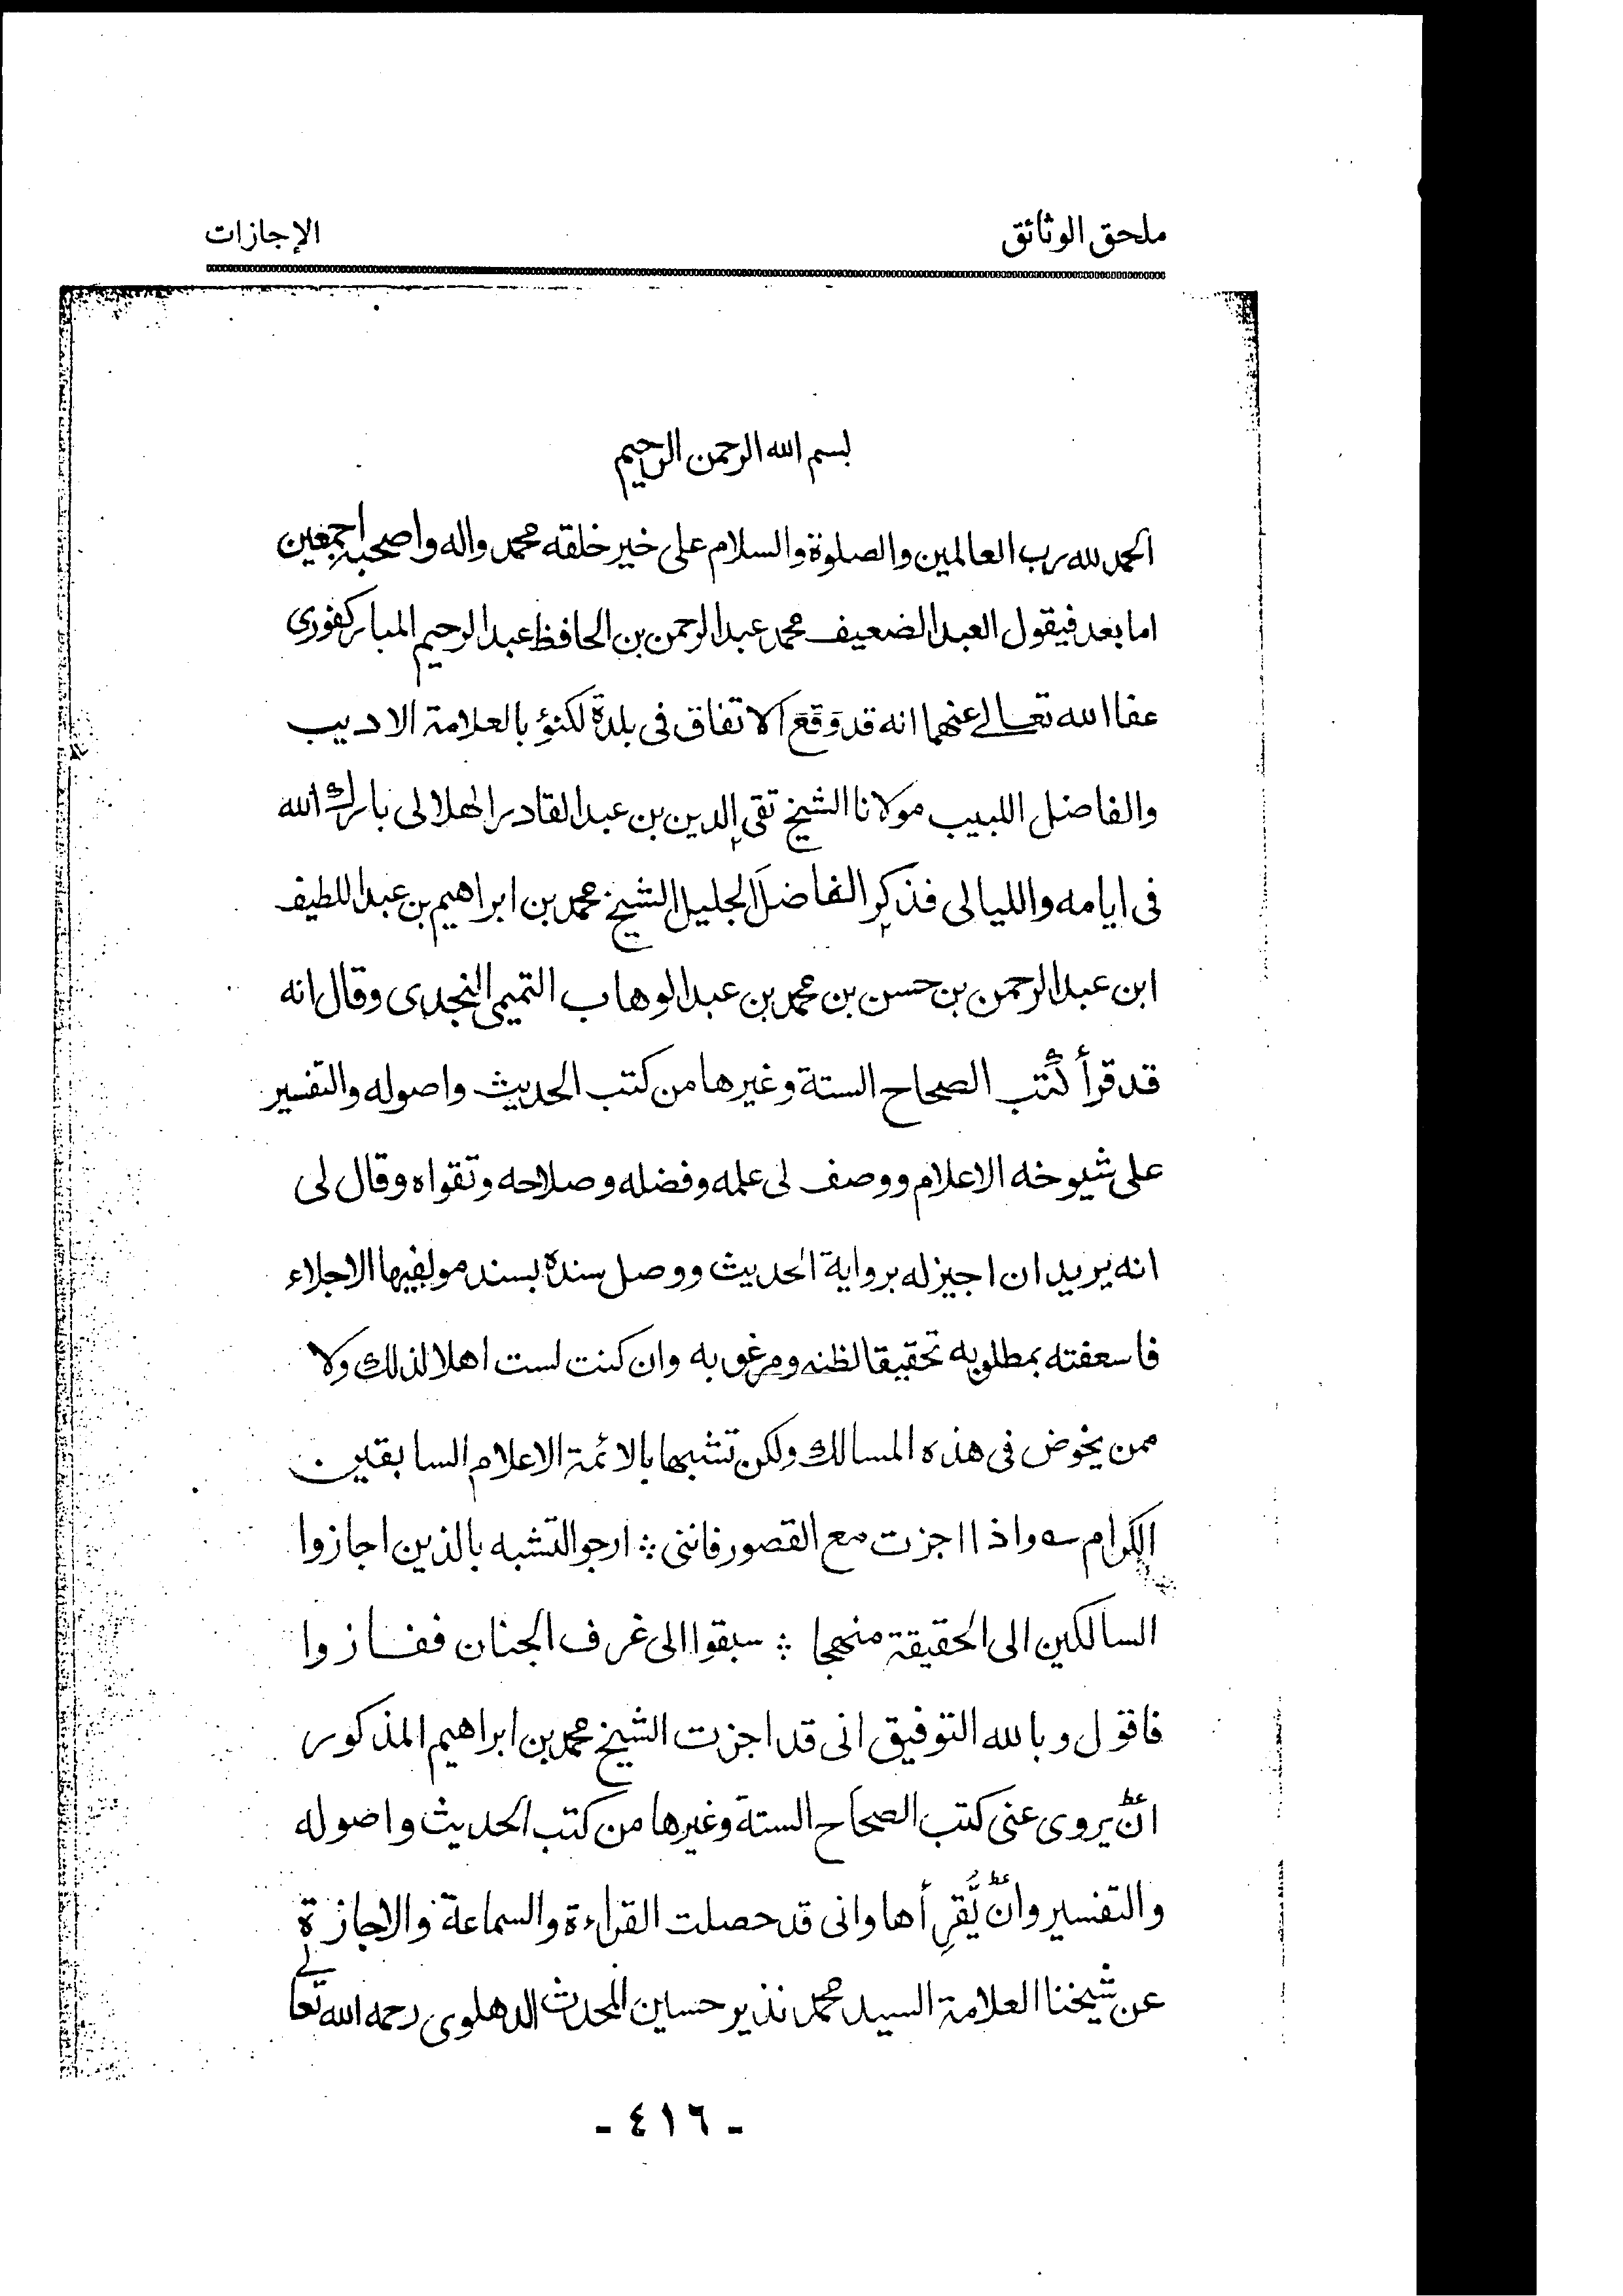 ملحق الوثائق
الإجازات
بسم الله الرحمن الرحيم
الحمد لله رب العالمين والصلوة والسلام على خير خلقه محمد واله واصحبه اجمعين
اما بعد فيقول العبد الضعيف محمد عبد الرحمن بن الحافظ عبد الرحيم المباركفورى
عفا الله تعالے عنهما انه قد وَقَعَ الاتفاق فى بلدة لكنؤ بالعلامة الاديب
والفاضل اللبيب مولانا الشيخ تقى الدين بن عبد القادر الهلالى بارك الله
فى ايامه والليالى فذكر الفاضلَ الجليل الشيخ محمد بن ابراهيم بن عبد اللطيف
ابن عبد الرحمن بن حسن بن محمد بن عبد الوهاب التميمى النجدى وقال انه
قد قرأ كُتب الصحاح الستة وغيرها من كتب الحديث واصوله والتفسير
على شيوخه الاعلام ووصف لى علمه وفضله وصلاحه وتقواه وقال لى
انه يريد ان اجيز له برواية الحديث ووصل سنده بسند مولفيها الاجلاء
فاسعفته بمطلوبه تحقيقا لظنه ومرغوبه وان كنت لست اهلا لذلك ولا
ممن يخوض فى هذه المسالك ولكن تشبها بالائمة الاعلام السابقين
الكرام ؎ واذا اجزت مع القصور فاننى ؞ ارجو التشبه بالذين اجازوا
السالكين الى الحقيقة منهجا ؞ سبقوا الى غرف الجنان ففازوا
فاقول وبالله التوفيق انى قد اجزت الشيخ محمد بن ابراهيم المذكور
انّ يروى عنى كتب الصحاح الستة وغيرها من كتب الحديث واصوله
والتفسير وانّ يُّقرِأها وانى قد حصلت القراءة والسماعة والاجازة
عن شيخنا العلامة السيد محمد نذير حسين المحدث الدهلوى رحمه الله تعالے
- ٤١٦ -